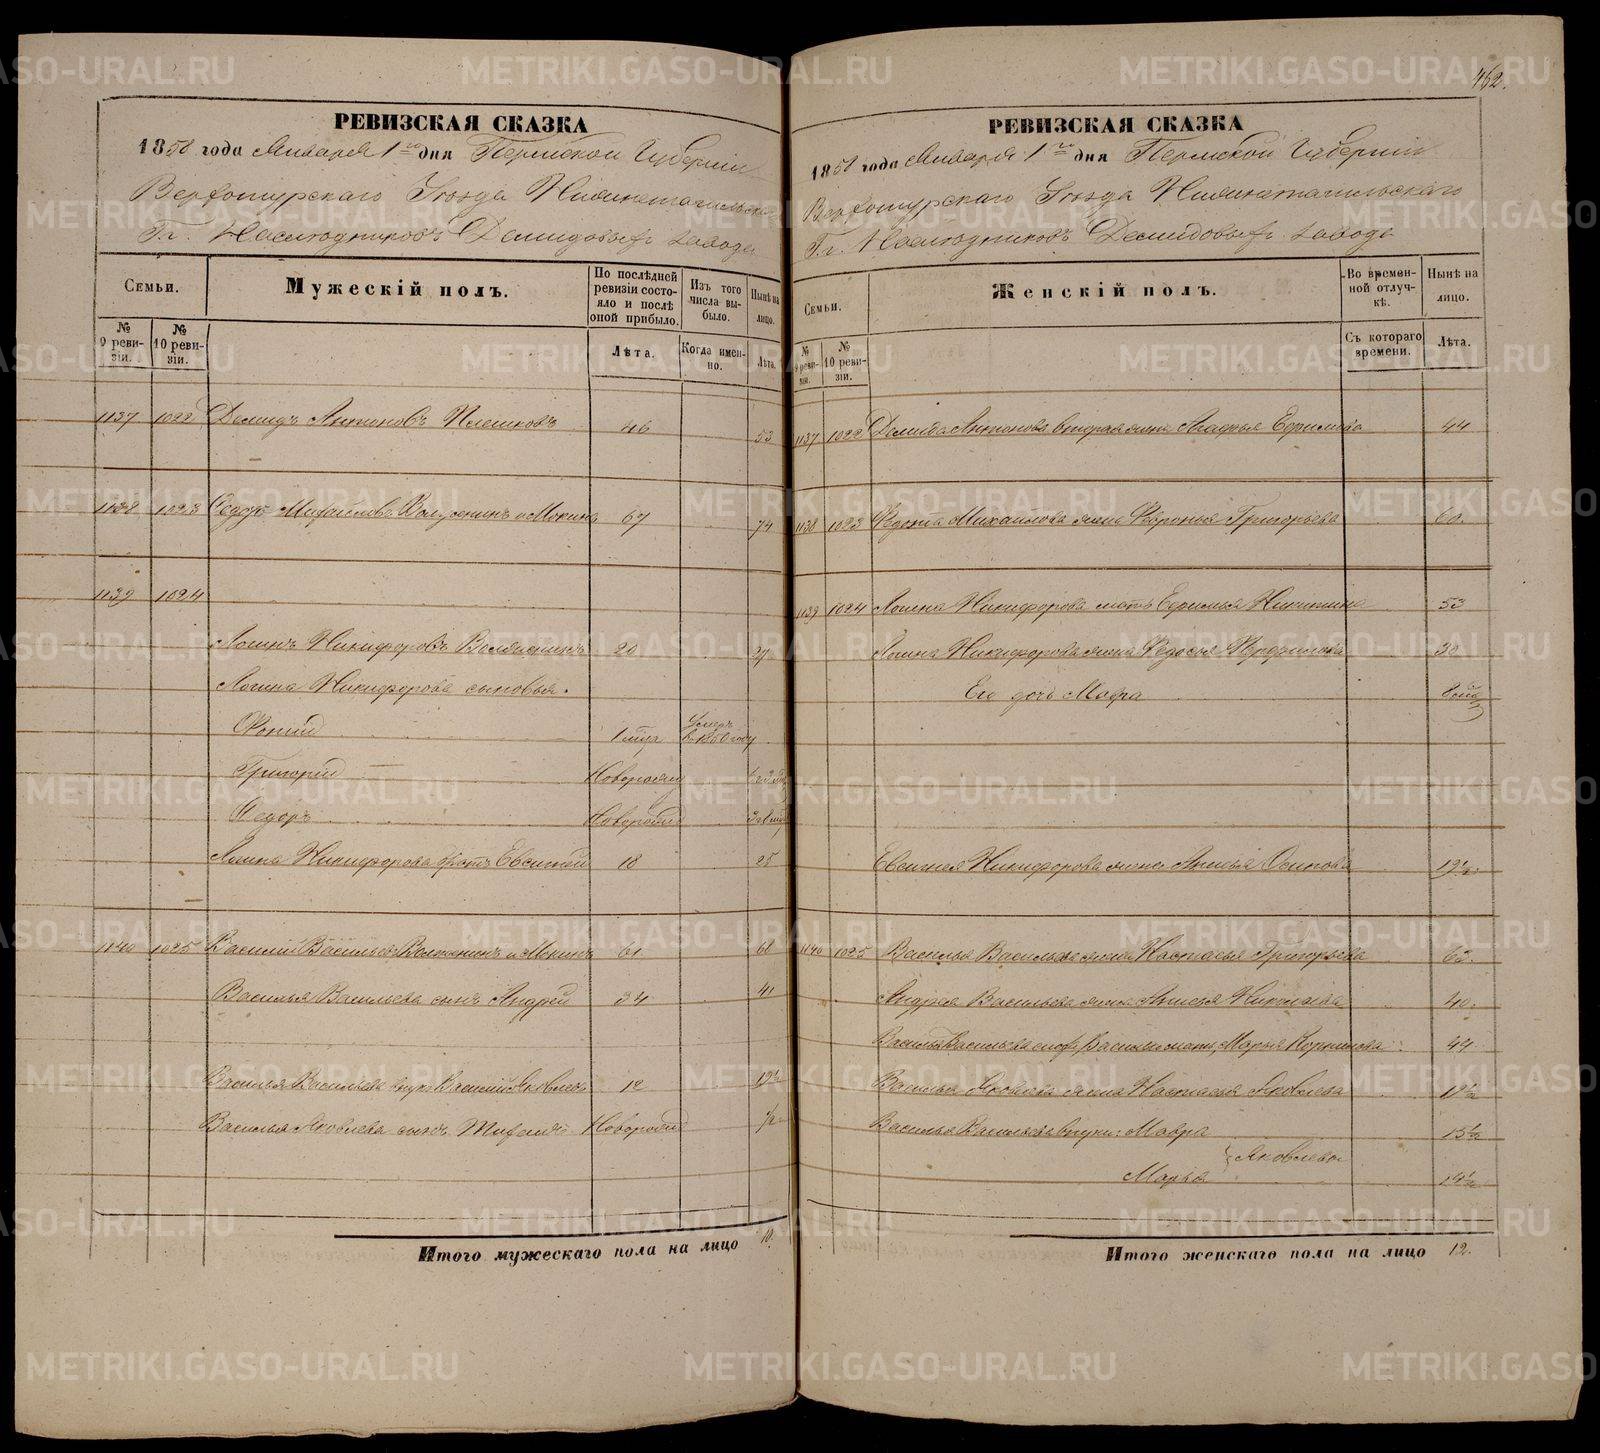 462.
РЕВИЗСКАЯ СКАЗКА
1858 года Января 1го дня Пермской Губернии
Верхотурскаго Уѣзда Нижнетагильскаго
Гг. Наслѣдниковъ Демидовыхъ завода
Семьи.
Мужескій полъ.
По послѣдней ревизіи состояло и послѣ оной прибыло.
Изъ того числа выбыло.
Нынѣ на лицо.
№ 9 ревизіи.
№ 10 ревизіи.
Лѣта.
Когда именно.
Лѣта.
1137 1022 Демидъ Антиповъ Плешковъ 46 53
1138 1023 Михайловъ и Мокинъ 67 74
1139 1024
Логинъ Никифоровъ 20 27
Логина Никифорова сыновья.
Фотий Умеръ
Григорий Новорожд
Федоръ Новорожд
Логина Никифорова братъ Евсигней 18 25
1140 1025 Василий Васильевъ и Мокинъ 61 68
Василья Васильева сынъ Андрей 34 41
Василья Васильева внукъ Василий Яковлевъ 12 19½
Василья Яковлева сынъ Новорожд ½
Итого мужескаго пола на лицо 10.
РЕВИЗСКАЯ СКАЗКА
1858 года Января 1го дня Пермской Губернии
Верхотурскаго Уѣзда Нижнетагильскаго
Гг. Наслѣдниковъ Демидовыхъ завода
Семьи.
Женскій полъ.
Во временной отлучкѣ.
Нынѣ на лицо.
№ 9 ревизіи.
№ 10 ревизіи.
Съ котораго времени.
Лѣта.
1137 1022 Демида Антипова вторая жена Агафья Ефимова 44
1138 1023 Михайлова жена Февронья Григорьева 60.
1139 1024 Логина Никифорова мать Ефимья Никитина 53
Логина Никифорова жена Федосья 30
Его дочь Мавра
Евсигнея Никифорова жена Анисья Осипова 19½.
1140 1025 Василья Васильева жена Настасья Григорьева 62.
Андрея Васильева жена 40.
Василья Васильева сноха, Васильева мать, Марья 44
Василья Яковлева жена Настасья Яковлева 19½
Василья Васильева внуки: Мавра 15½
} Яковлевы
Марья 14½
Итого женскаго пола на лицо 12.
METRIKI.GASO-URAL.RU